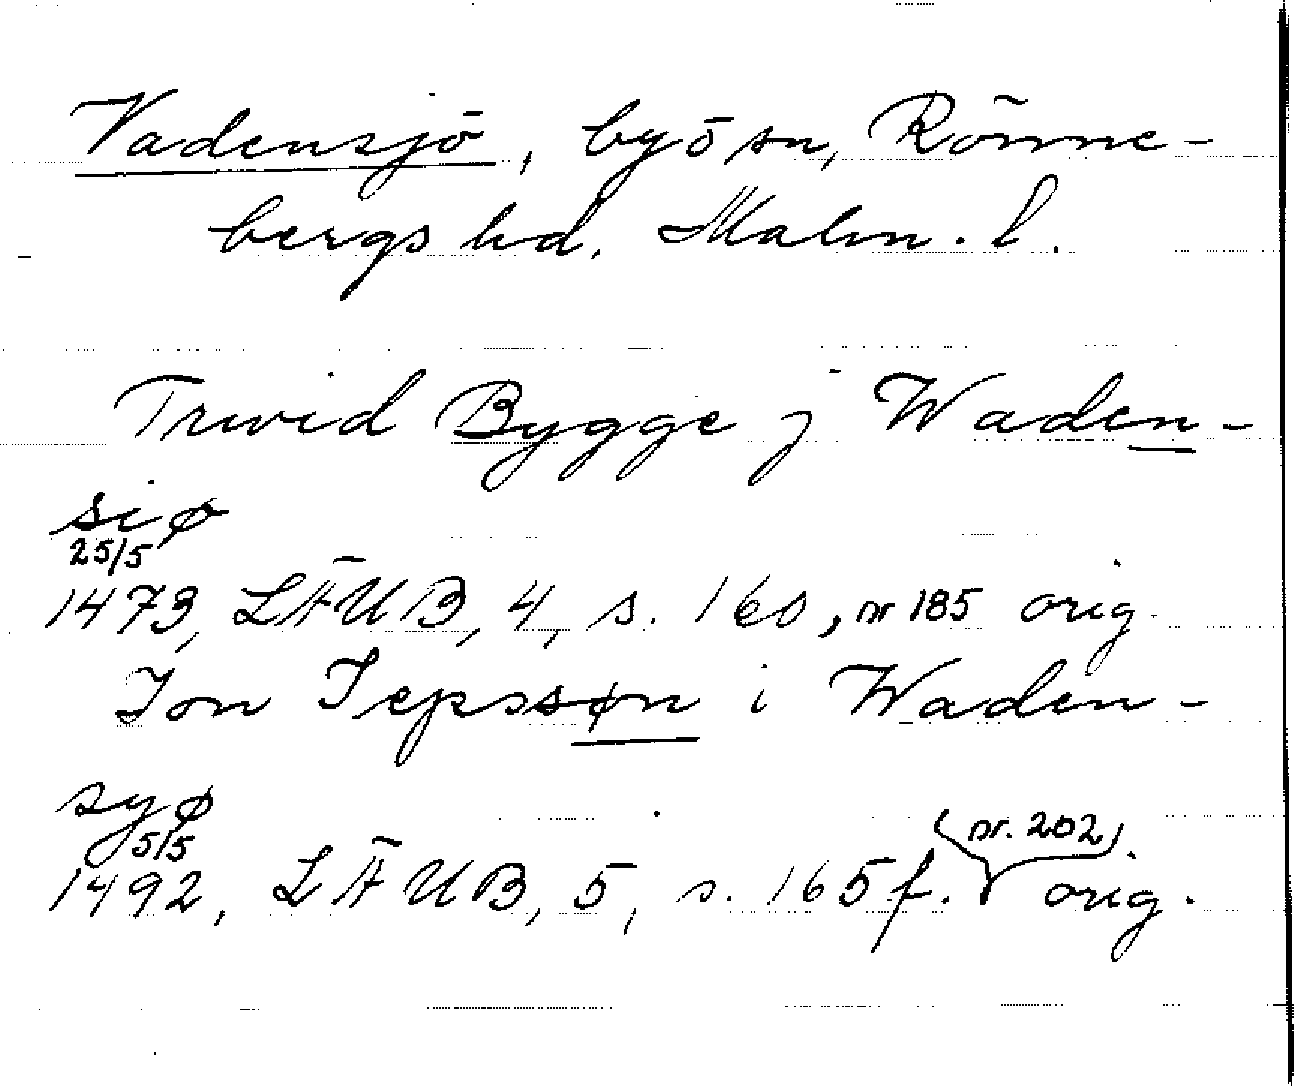 Vadensjö, by ö sn, Rönne-
bergs hd. Malm. l.
Truvid Bygge j Waden-
siø
25/5
1473, LÄUB, 4, s. 160, nr 185 orig.
Jon Jepssøn i Waden-
syø
5/5 (nr. 202)
1492, LÄUB, 5, s. 165 f. orig.